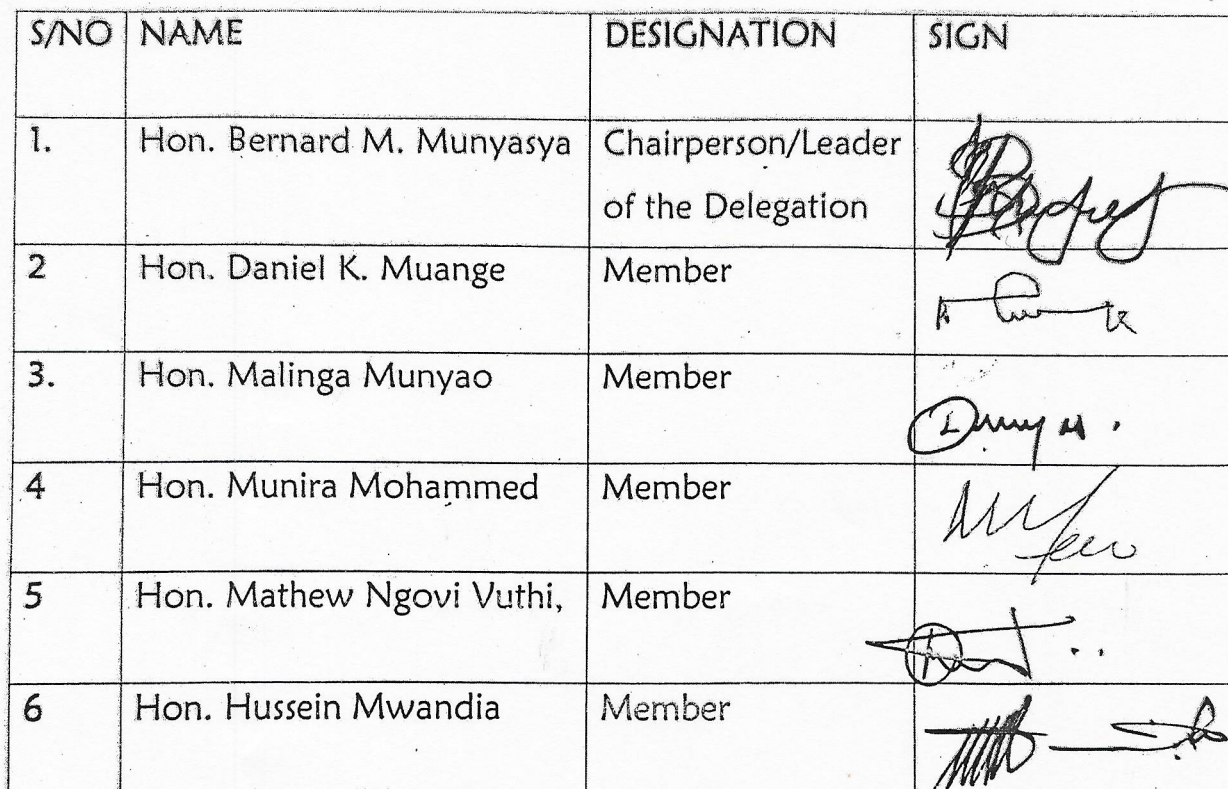 S/NO NAME DESIGNATION SIGN
1. Hon. Bernard M. Munyasya Chairperson/Leader
of the Delegation
2 Hon. Daniel K. Muange Member
3. Hon. Malinga Munyao Member
4 Hon. Munira Mohammed Member
5 Hon. Mathew Ngovi Vuthi, Member
6 Hon. Hussein Mwandia Member